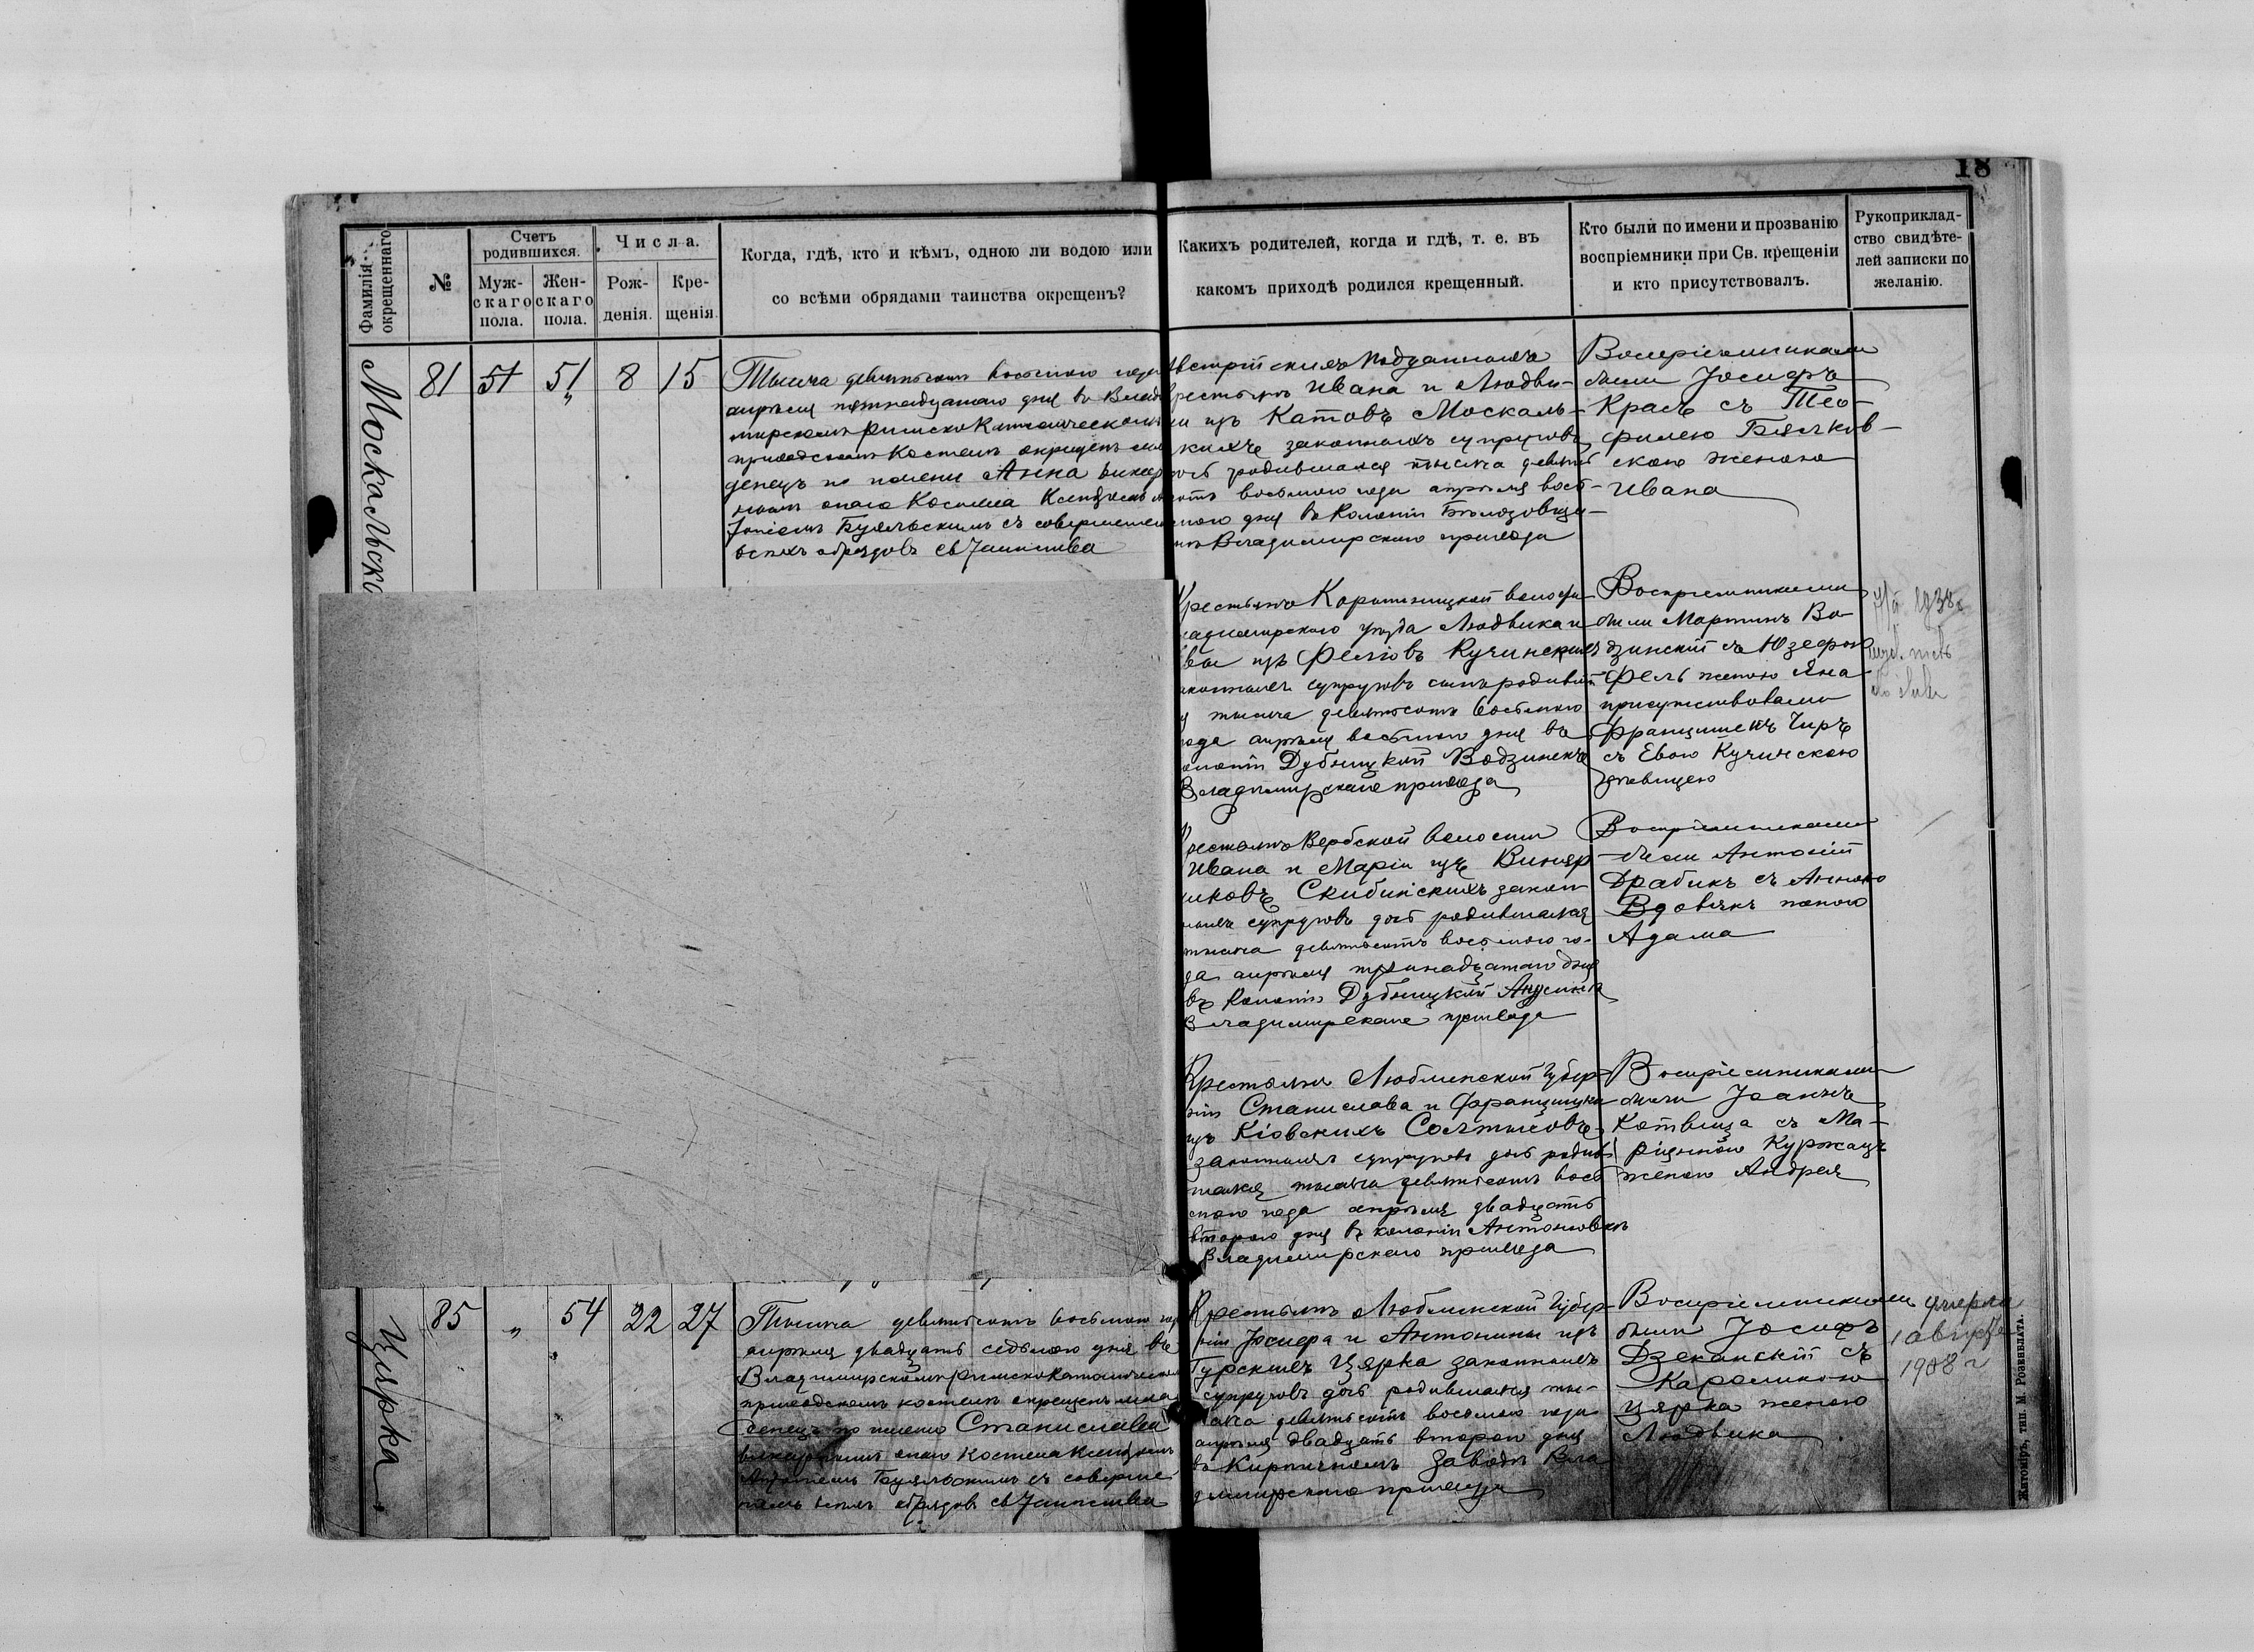 18
Фамилія окрещеннаго
№
Счетъ родившихся.
Муж-скаго пола.
Жен-скаго пола.
Числа.
Рож-денія.
Кре-щенія.
Когда, гдѣ, кто и кѣмъ, одною ли водою или
со всѣми обрядами таинства окрещенъ?
Какихъ родителей, когда и гдѣ, т. е. въ
какомъ приходѣ родился крещенный.
Кто были по имени и прозванію
воспріемники при Св. крещеніи
и кто присутствовалъ.
Рукоприклад-
ство свидѣте-
лей записки по
желанію.
81
51
51
8
15
Тысяча девятьсотъ восьмого года
апрѣля пятнадцатаго дня въ Влад
мирскомъ Римско Католическомъ
приходскомъ Костелѣ окрещенъ мла
денецъ по имени Анна викар
нымъ онаго Костела Ксендзомъ
Буяльскимъ съ совершеніем
всѣхъ обрядовъ св Таинства
Австрійскихъ Подданныхъ
крестьянъ Ивана и Людви-
ки изъ Катовъ Москаль-
скихъ законныхъ супруговъ
дочь родившаяся тысяча девять
сотъ восьмого года апрѣля вось-
мого дня въ Колоніи
Владимирскаго прихода
Воспріемниками
были Іосифъ
Красъ съ Тео-
филею Бялков-
скою женою
Ивана
Крестьянъ волости
Владимирскаго уѣзда Людвика и
Евы изъ Фелювъ Кучинскихъ
законныхъ супруговъ сынъ родивш
тысяча девятьсотъ восьмого
года апрѣля восьмого дня въ
Колоніи Дубницкой Водзинекъ
Владимирскаго прихода
Воспріемниками
были Мартинъ Во-
дзинскій съ Юзефою
Фель женою Яна
присутствовали
Францишекъ Чиръ
съ Евою Кучинскою
дѣвицею
Крестьянъ Вербской волости
Ивана и Маріи изъ Виняр
чиковъ Скибинскихъ закон
ныхъ супруговъ дочь родившаяся
тысяча девятьсотъ восьмого го-
да апрѣля тринадцатаго дня
въ Колоніи Дубницкой
Владимирскаго прихода
Воспріемниками
были Антоній
Драбикъ съ Анною
Вдовякъ женою
Адама
Крестьянъ Люблинской Губер-
ніи Станислава и Францишки
изъ Кіовскихъ Солтысовъ
законныхъ супруговъ дочь родив
шаяся тысяча девятьсотъ вось
мого года апрѣля двадцать
второго дня въ колоніи Антоновкѣ
Владимирскаго прихода
Воспріемниками
были Іоаннъ
Котвица съ Ма-
ріанною Куржацъ
женою Андрея
Цярка
85
"
54
22
27
Тысяча девятьсотъ восьмого год
апрѣля двадцать седьмого дня въ
Владимирскомъ Римско Католическом
приходскомъ костелѣ окрещенъ мла
денецъ по имени Станислава
викарнымъ онаго Костела Ксендзомъ
Буяльскимъ съ соверше-
ніемъ всѣхъ обрядовъ св Таинства
Крестьянъ Люблинской Губер-
ніи Іосифа и Антонины изъ
Гурскихъ Цярка законныхъ
супруговъ дочь родившаяся ты-
сяча девятьсотъ восьмого года
апрѣля двадцать второго дня
въ Кирпичномъ Заводѣ Вла
димирскаго прихода
Воспріемниками
были Іосифъ
Дзеканскій съ
Каролиною
Цярка женою
Людвика
умерла
1 августа
1908 г
Житоміръ, тип. М. Розенблата.